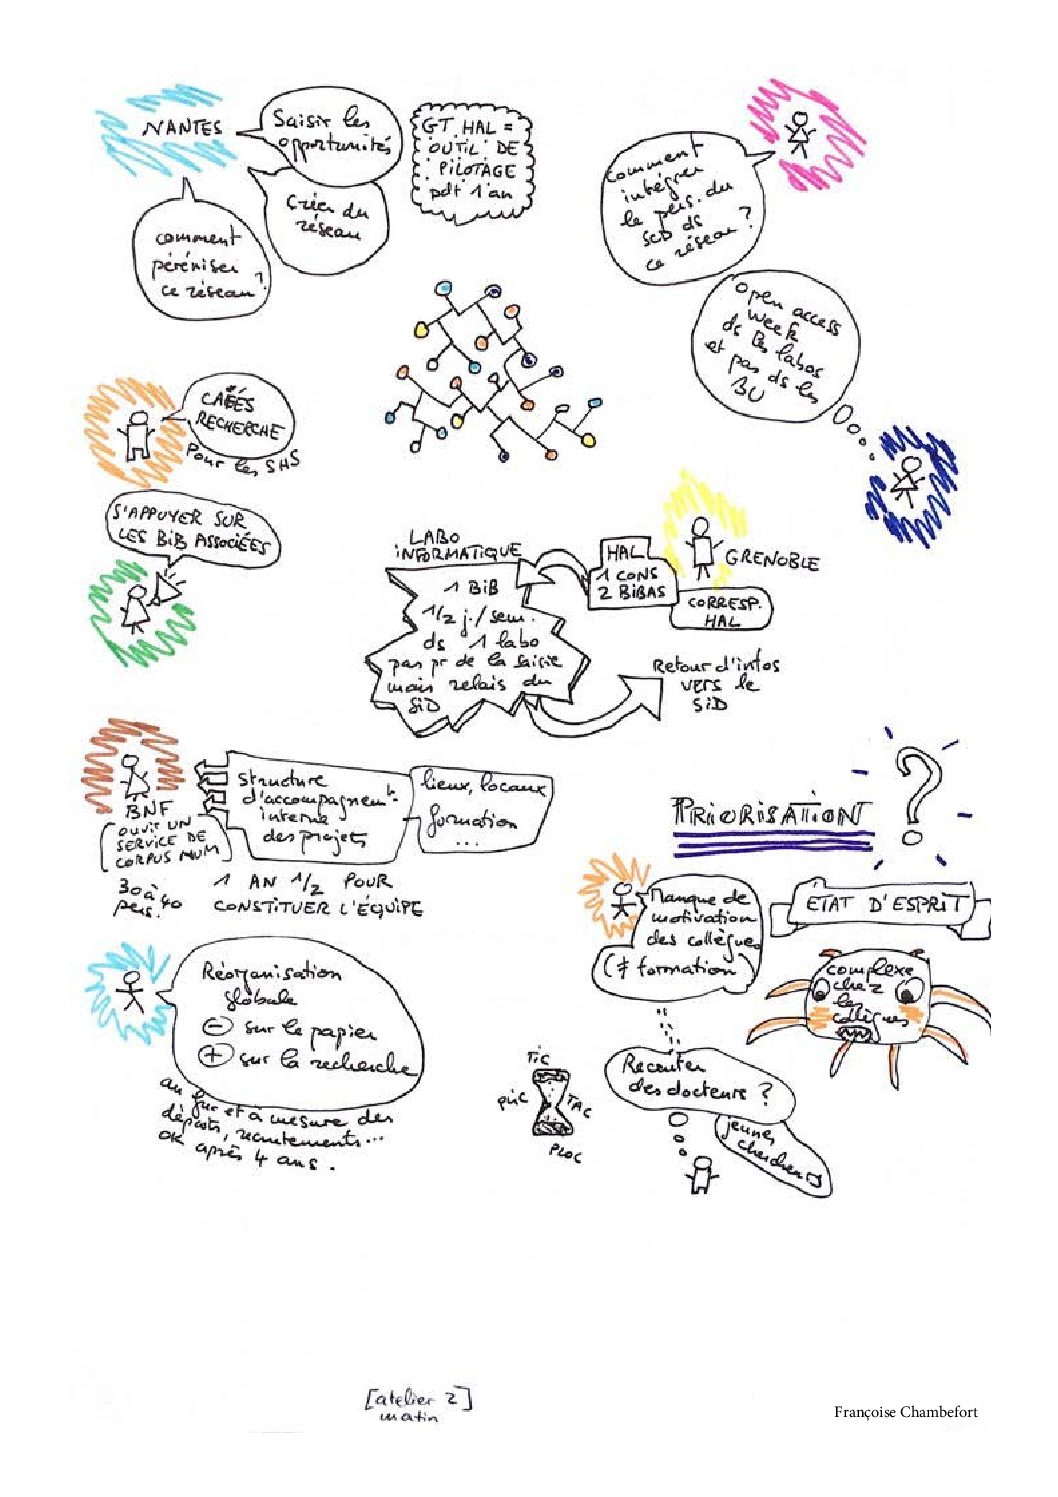 NANTES
Saisir les
opportunités
Créer du
réseau
comment
péréniser
ce réseau ?
GT HAL =
OUTIL DE
PILOTAGE
pdt 1 an
comment
intégrer
le pers. du
SCD ds
ce réseau ?
open access
week
ds les labos
et pas ds les
BU
CAFÉS
RECHERCHE
Pour les SHS
S'APPUYER SUR
LES BIB ASSOCIÉES
LABO
INFORMATIQUE
1 BIB
1/2 j./sem.
ds 1 labo
pas pr de la saisie
mais relais du
SID
HAL
1 CONS
2 BIBAS
GRENOBLE
CORRESP.
HAL
Retour d'infos
vers le
SID
BNF
OUVRIR UN
SERVICE DE
CORPUS NUM
30 à 40
pers.
structure
d'accompagnemt
interne
des projets
lieux, locaux
formation
...
1 AN 1/2 POUR
CONSTITUER L'ÉQUIPE
PRIORISATION ?
Manque de
motivation
des collègues
(≠ formation)
ÉTAT D'ESPRIT
complexe
chez
les
collègues
Réorganisation
globale
⊖ sur le papier
⊕ sur la recherche
au fur et à mesure des
départs, recrutements...
OK après 4 ans.
TIC
TAC
PLIC
PLOC
Recruter
des docteurs ?
jeunes
chercheurs
[atelier 2]
matin
Françoise Chambefort